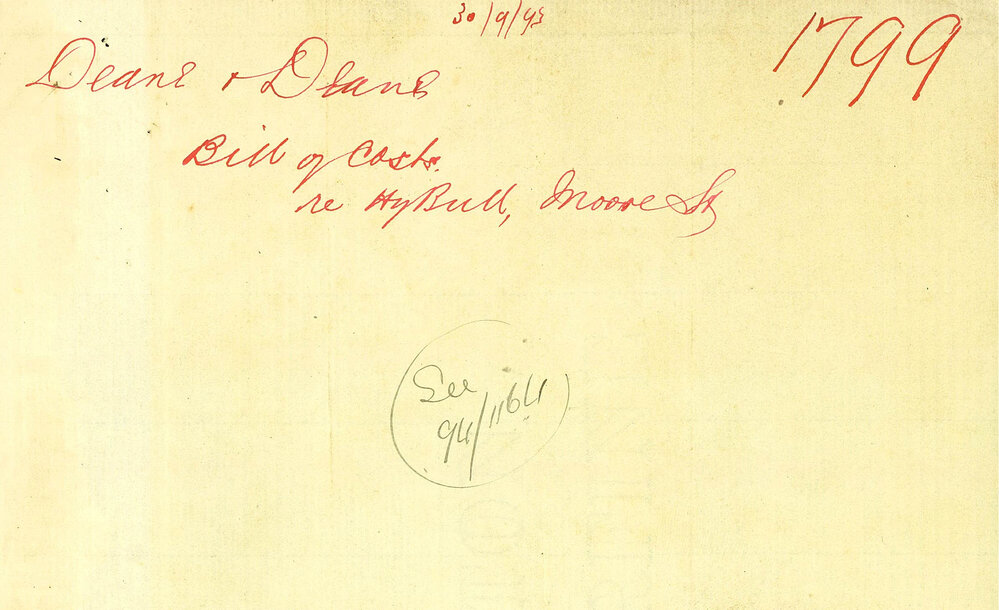 30/9/93
1799
Deane & Deane
Bill of Costs.
re Hy Bull, Moore St
See
94/1164